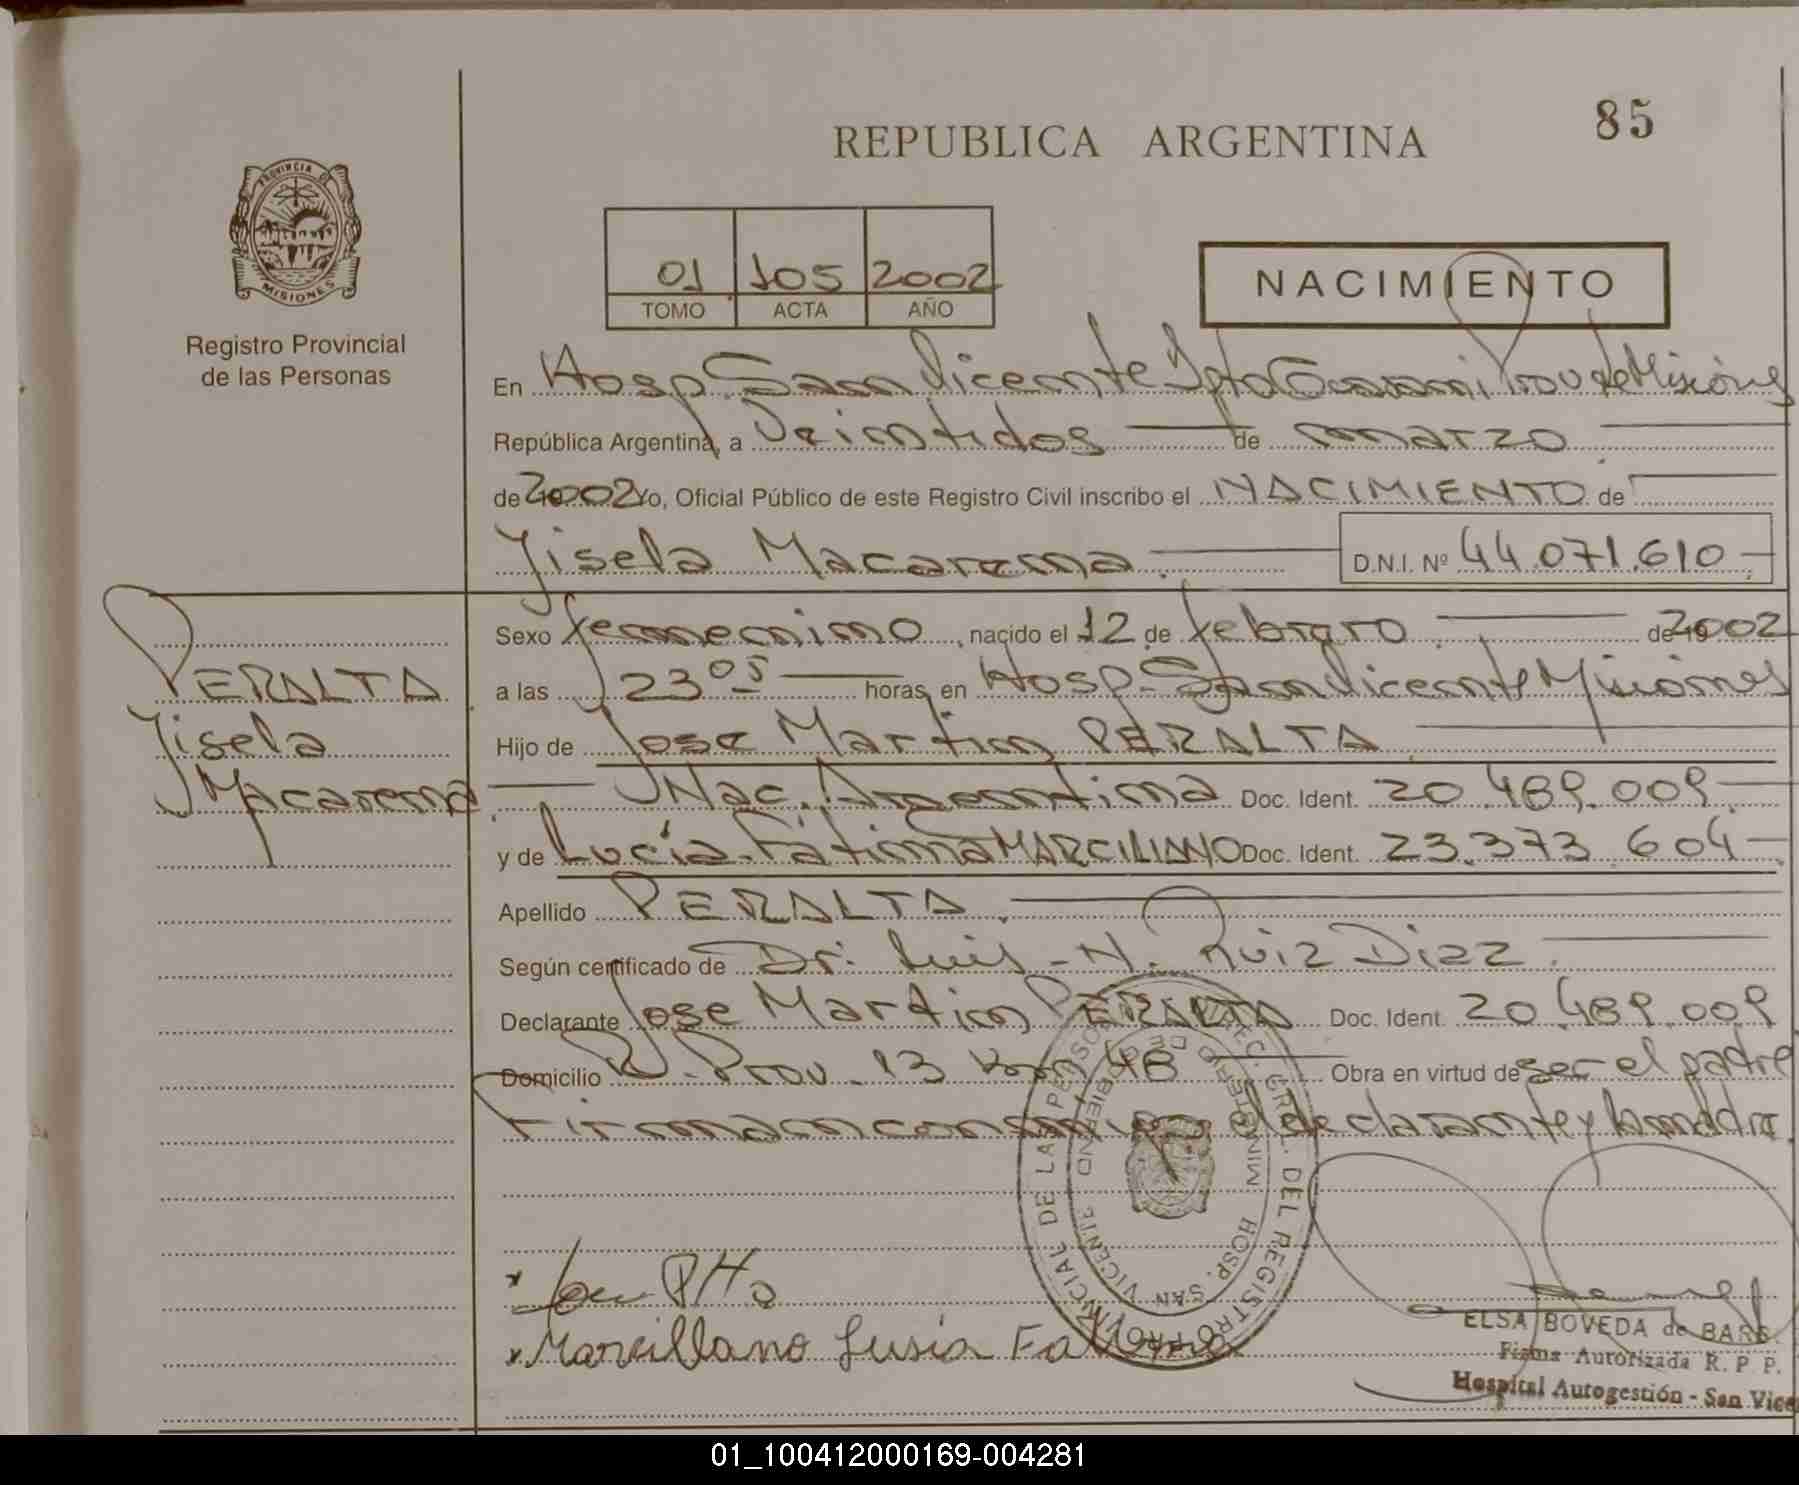 85
REPUBLICA ARGENTINA
PROVINCIA DE
MISIONES
Registro Provincial
de las Personas
01 105 2002
TOMO ACTA AÑO
NACIMIENTO
En Hosp. San Vicente Dpto Guarani Prov de Misiones
República Argentina, a Veintidos de marzo
de 2002 Yo, Oficial Público de este Registro Civil inscribo el NACIMIENTO de
Yisela Macarena D.N.I. Nº 44.071.610
Sexo femenino, nacido el 12 de febrero de 2002
a las 23 05 horas, en Hosp. San Vicente Misiones
Hijo de Jose Martin PERALTA
Nac. Argentina Doc. Ident. 20.489.009
y de Lucía Fátima MARCILIANO Doc. Ident. 23.373.604
Apellido PERALTA
Según certificado de Dr. Luis N. Ruiz Diaz
Declarante Jose Martin PERALTA Doc. Ident. 20.489.009
Domicilio R. Prov. 13 Km 48 Obra en virtud de ser el padre
Firman conmigo el declarante y la madre.
PERALTA
Yisela
Macarena
REGISTRO PROVINCIAL DE LAS PERSONAS
HOSP. SAN VICENTE
MINISTERIO DE GOBIERNO
Marcillano Lusia Fatima
ELSA BOVEDA de
Firma Autorizada R. P. P.
Hospital Autogestión - San
01_100412000169-004281